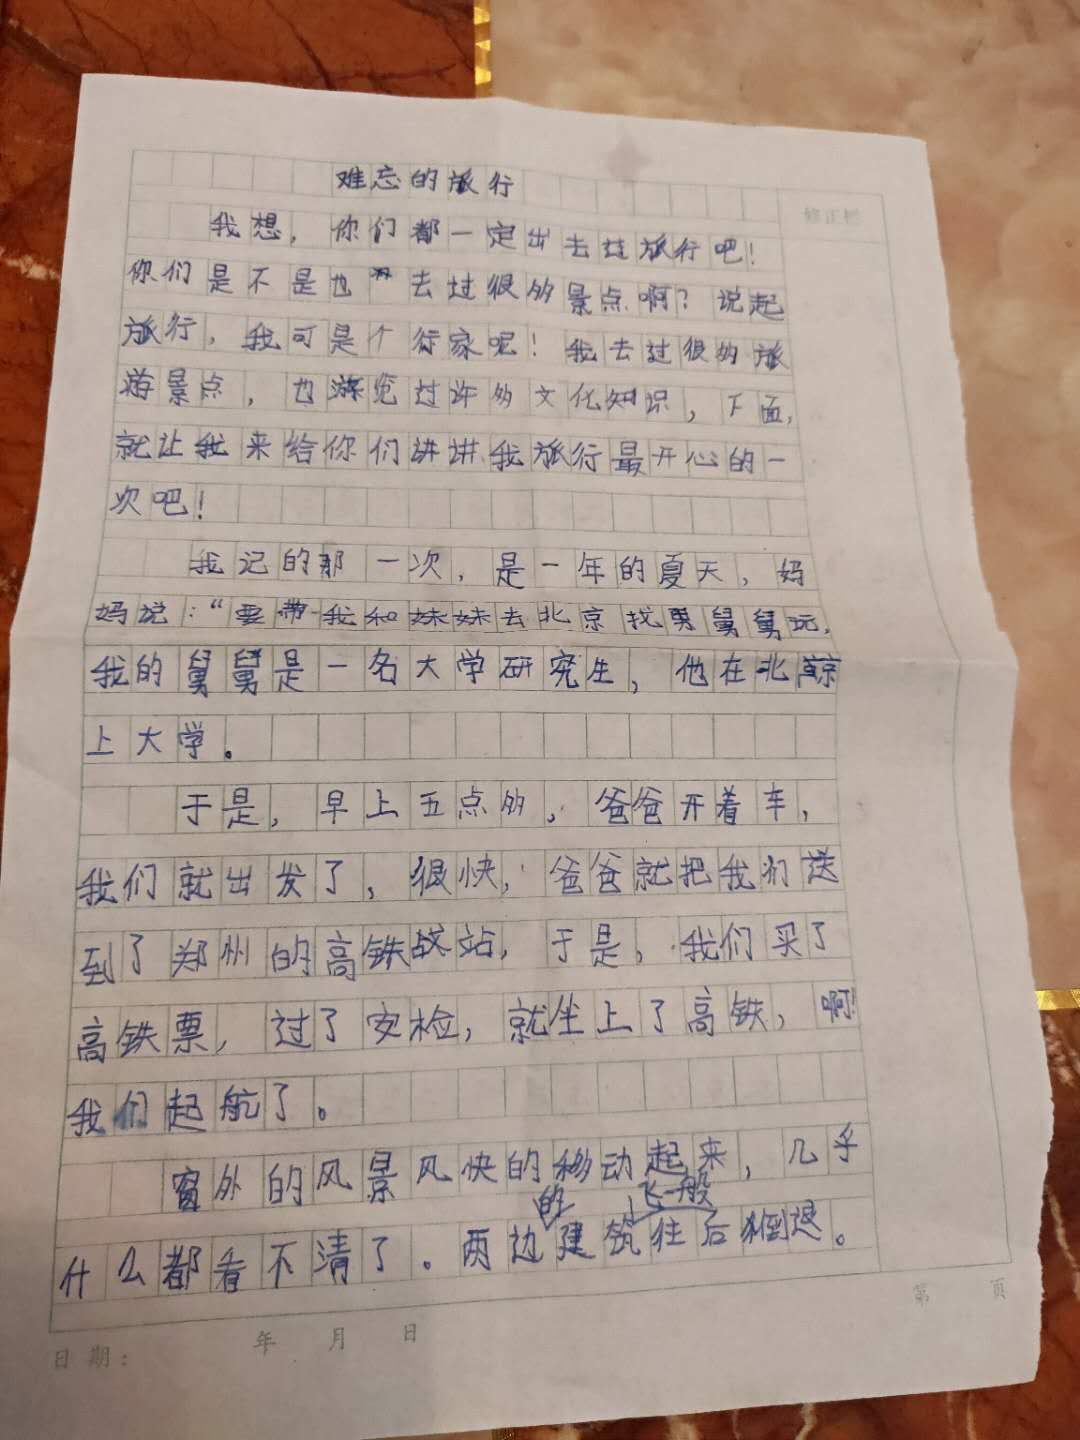 难忘的旅行
修正栏
我想，你们都一定出去过旅行吧！
你们是不是也去过很多景点啊？说起
旅行，我可是个行家呢！我去过很多旅
游景点，也游览过许多文化知识，下面，
就让我来给你们讲讲我旅行最开心的一
次吧！
我记的那一次，是一年的夏天，妈
妈说：“要带我和妹妹去北京找舅舅玩，
我的舅舅是一名大学研究生，他在北京
上大学。
于是，早上五点多，爸爸开着车，
我们就出发了，很快，爸爸就把我们送
到了郑州的高铁站，于是，我们买了
高铁票，过了安检，就坐上了高铁，啊！
我们起航了。
窗外的风景风快的移动起来，几乎
什么都看不清了。两边的建筑飞一般往后倒退。
第 页
日期： 年 月 日